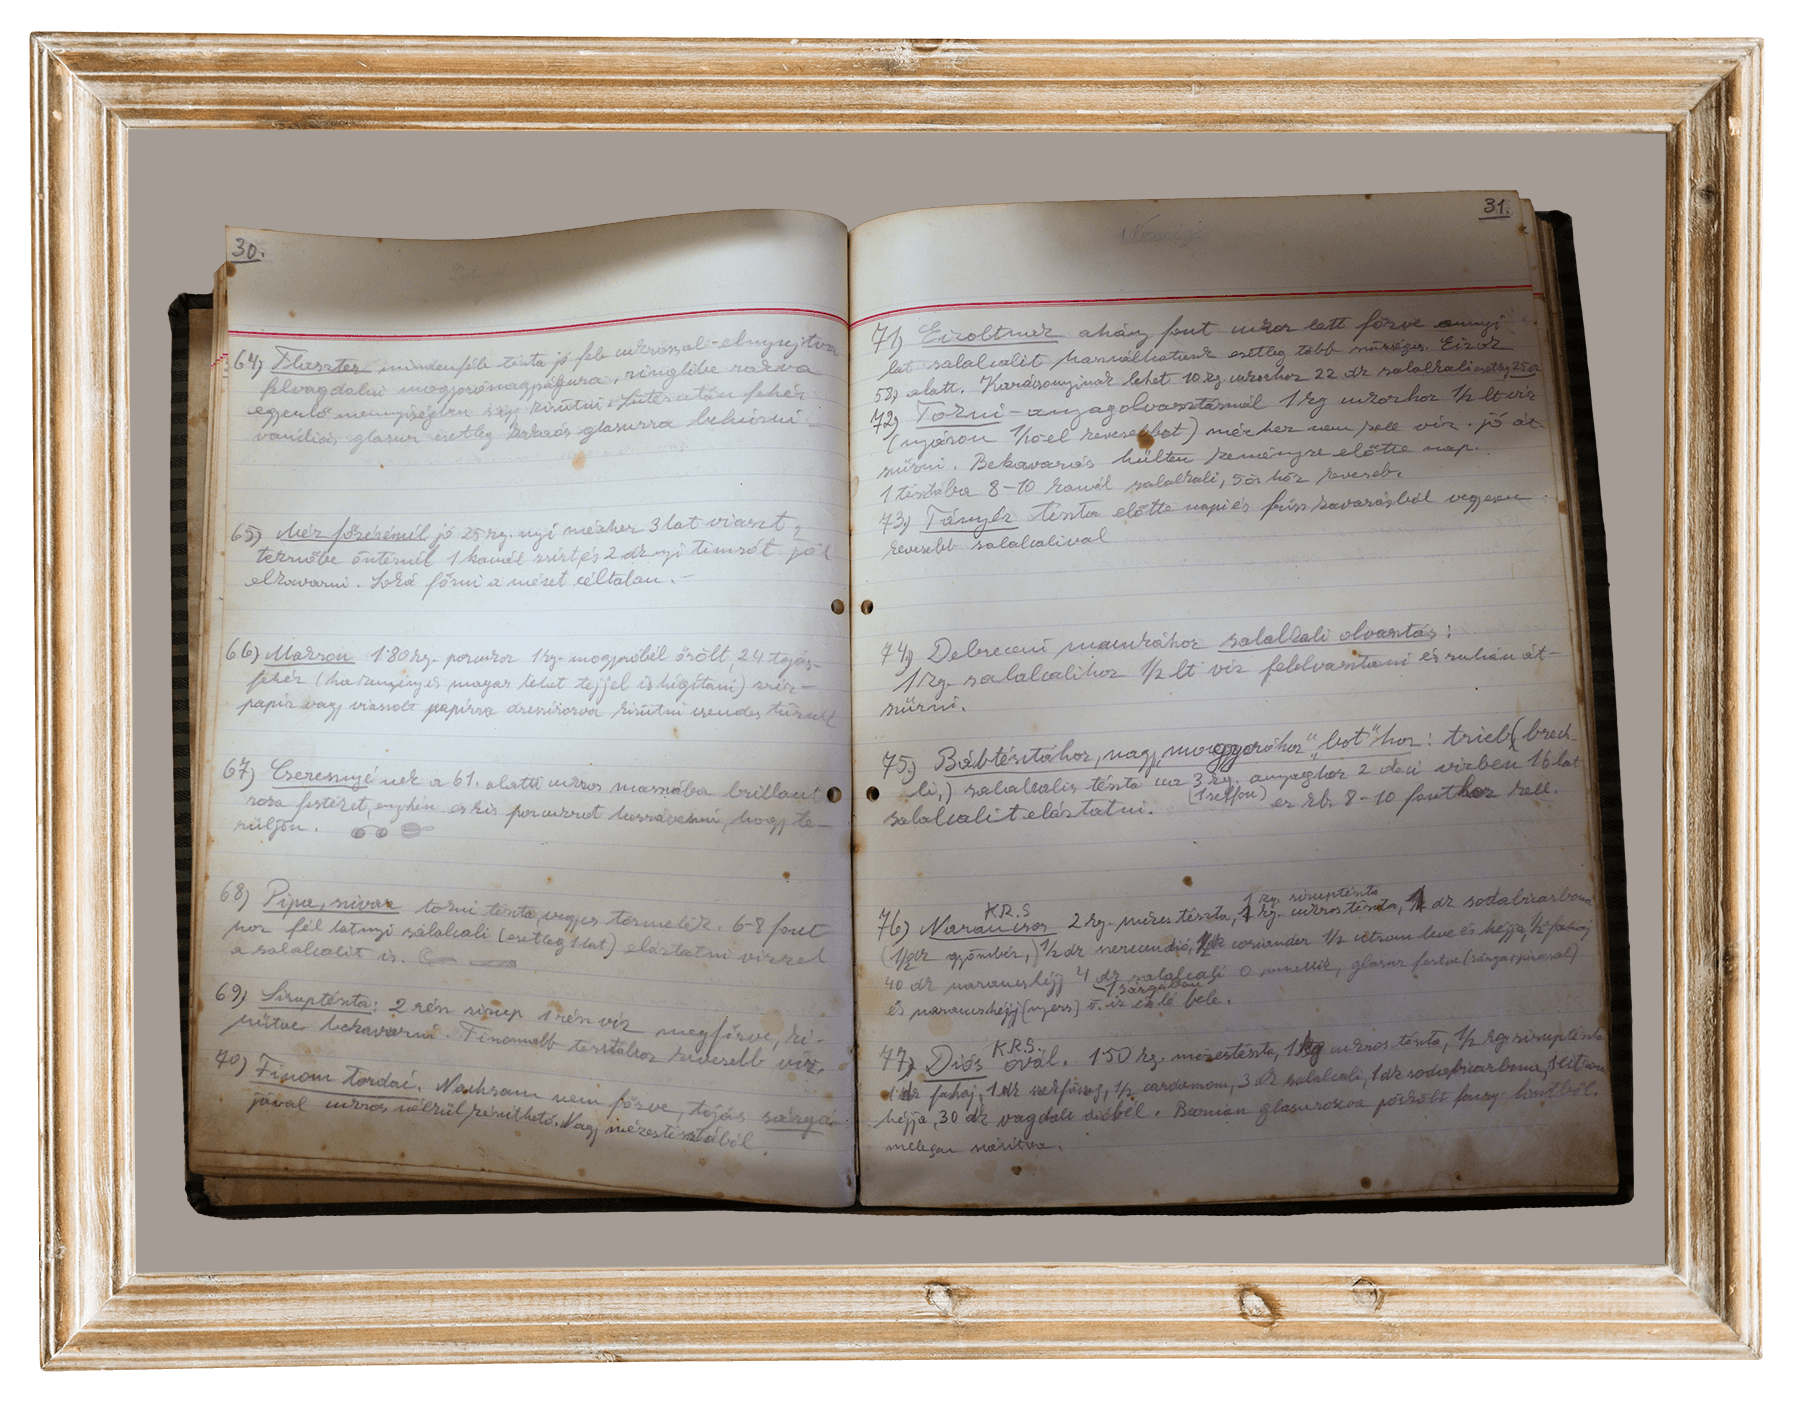 30.
64) Flaszter mindenféle tészta jó fele cukrossal elnyujtva
felvagdalni mogyorónagyságura, ringlibe rakva
egyenlő mennyiségben kisütni. Sütés után fehér
vaníliás glasur esetleg kakaós glasurra behúzni
65) Méz főzésénél jó 25 kg.nyi mézhez 3 lat viaszt,
tekenőbe öntésnél 1 kanál zsírt és 2 dk nyi timsót jól
elkavarni. Soká főzni a mézet céltalan.-
66) Makron 1·80 kg. porcukor 1 kg. mogyoróból őrölt 24 tojás-
fehér (ha drága lehet tejjel is hígítani) zsír-
papír vagy viaszolt papírra dresirozva kisütni csendes tűznél
67) Cseresznyének a 61. alatti cukros masszába brillant
rosa festéket, enyhén és kis porcukrot hozzávenni, hogy te-
rüljön.
68) Pipa, szivar torni tészta, vegyes törmelék. 6-8 font
hoz fél latnyi salakali (esetleg 1 lat) eláztatni vízzel
a salakalit is.
69) Siruptészta: 2 rész sirup 1 rész víz megfőzve, ki-
hűtve bekavarni. Finomabb tésztához kevesebb víz.
70) Finom tordai. Nachram nem főzve, tojás sárgá-
jával cukros nélkül készíthető. Nagy mézestésztából.
31.
71) Eizoltmez ahány font cukor lett főzve annyi
lat salakalit használhatunk esetleg több szükséges. Eizok
58) alatt. Karácsonyinak lehet 10 kg. cukorhoz 22 dk salalkali esetleg 25 dk
72) Torni-anyagolvasztásnál 1 kg cukorhoz 1/2 lt víz
(nyáron 1/10-el kevesebbet) mézhez nem kell víz. jó át-
szűrni. Bekavarás hülten keményre előtte nap.
1 tésztába 8-10 kanál salalkali, 5 ös höz kevesebb
73.) Tányér tészta előtte napi és friss kavarásból vegyesen
kevesebb salalcalival
74.) Debreceni mamrához salalkali olvasztás:
1 kg. salalcalihoz 1/2 lt víz felolvasztani és ruhán át-
szűrni.
75.) Bábtésztához, nagy "mogyoróhoz" "bot"hoz: trieb (brech-
li,) salalcalis tészta 3 kg. anyaghoz 2 deci vízben 16 lat
(1 seffon)
salalcalit eláztatni. ez kb. 8-10 fonthoz kell.
1 kg. siruptészta
K.R.S
76) Narancsos 2 kg. mézestészta, 1 kg. cukrostészta, 1 dk sodabicarbona
(1/2 dk gyömbér,) 1/2 dk szerecsendió, 1/2 dk coriander 1/2 citrom leve és héjja, 1/2 fahéj
40 dk narancshéjj 4 dk salalcali 0 numellik, glasur festve (sárga+pirossal)
1 sárgában
és narancshéjj (nyers) ö. íz és lé bele.
K.R.S.
77) Diós ovál. 1·50 kg. mézestészta, 1 kg cukros tészta, 1/2 kg siruptészta
1 dk fahéj, 1 dk szekfűszeg, 1/2 cardamom, 3 dk salalcali, 1 dk sodabicarbona, 1 citrom
héjja, 30 dk vagdalt dióbél. Barnán glasurozva pászolt lisztből.
melegen szárítva.